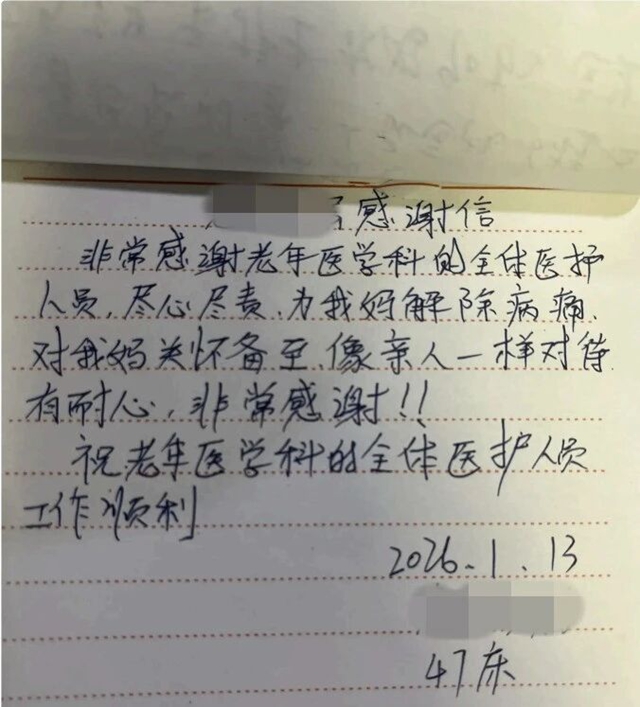 感谢信
非常感谢老年医学科的全体医护
人员,尽心尽责,为我妈解除病痛,
对我妈关怀备至,像亲人一样对待
有耐心,非常感谢!!
祝老年医学科的全体医护人员
工作顺利
2026.1.13
47床